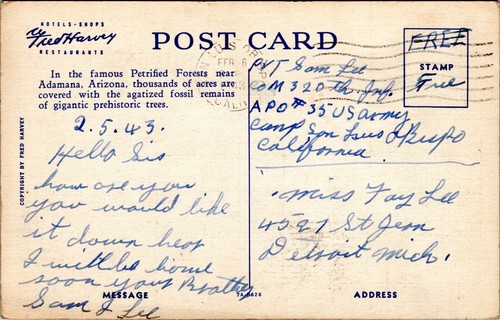 HOTELS-SHOPS
Fred Harvey
RESTAURANTS
POST CARD
In the famous Petrified Forests near
Adamana, Arizona, thousands of acres are
covered with the agatized fossil remains
of gigantic prehistoric trees.
COPYRIGHT BY FRED HARVEY
2.5.43.
Hello Sis
how are you
you would like
it down hear
I will be home
soon your Brother
Sam J Lee
MESSAGE
FREE
STAMP
Free
FEB 6
CALIF
PVT Sam Lee
Co M 320th Inf.
APO #35 US army
Camp San Luis Obispo
California
Miss Fay Lee
4527 St Jean
Detroit Mich.
ADDRESS